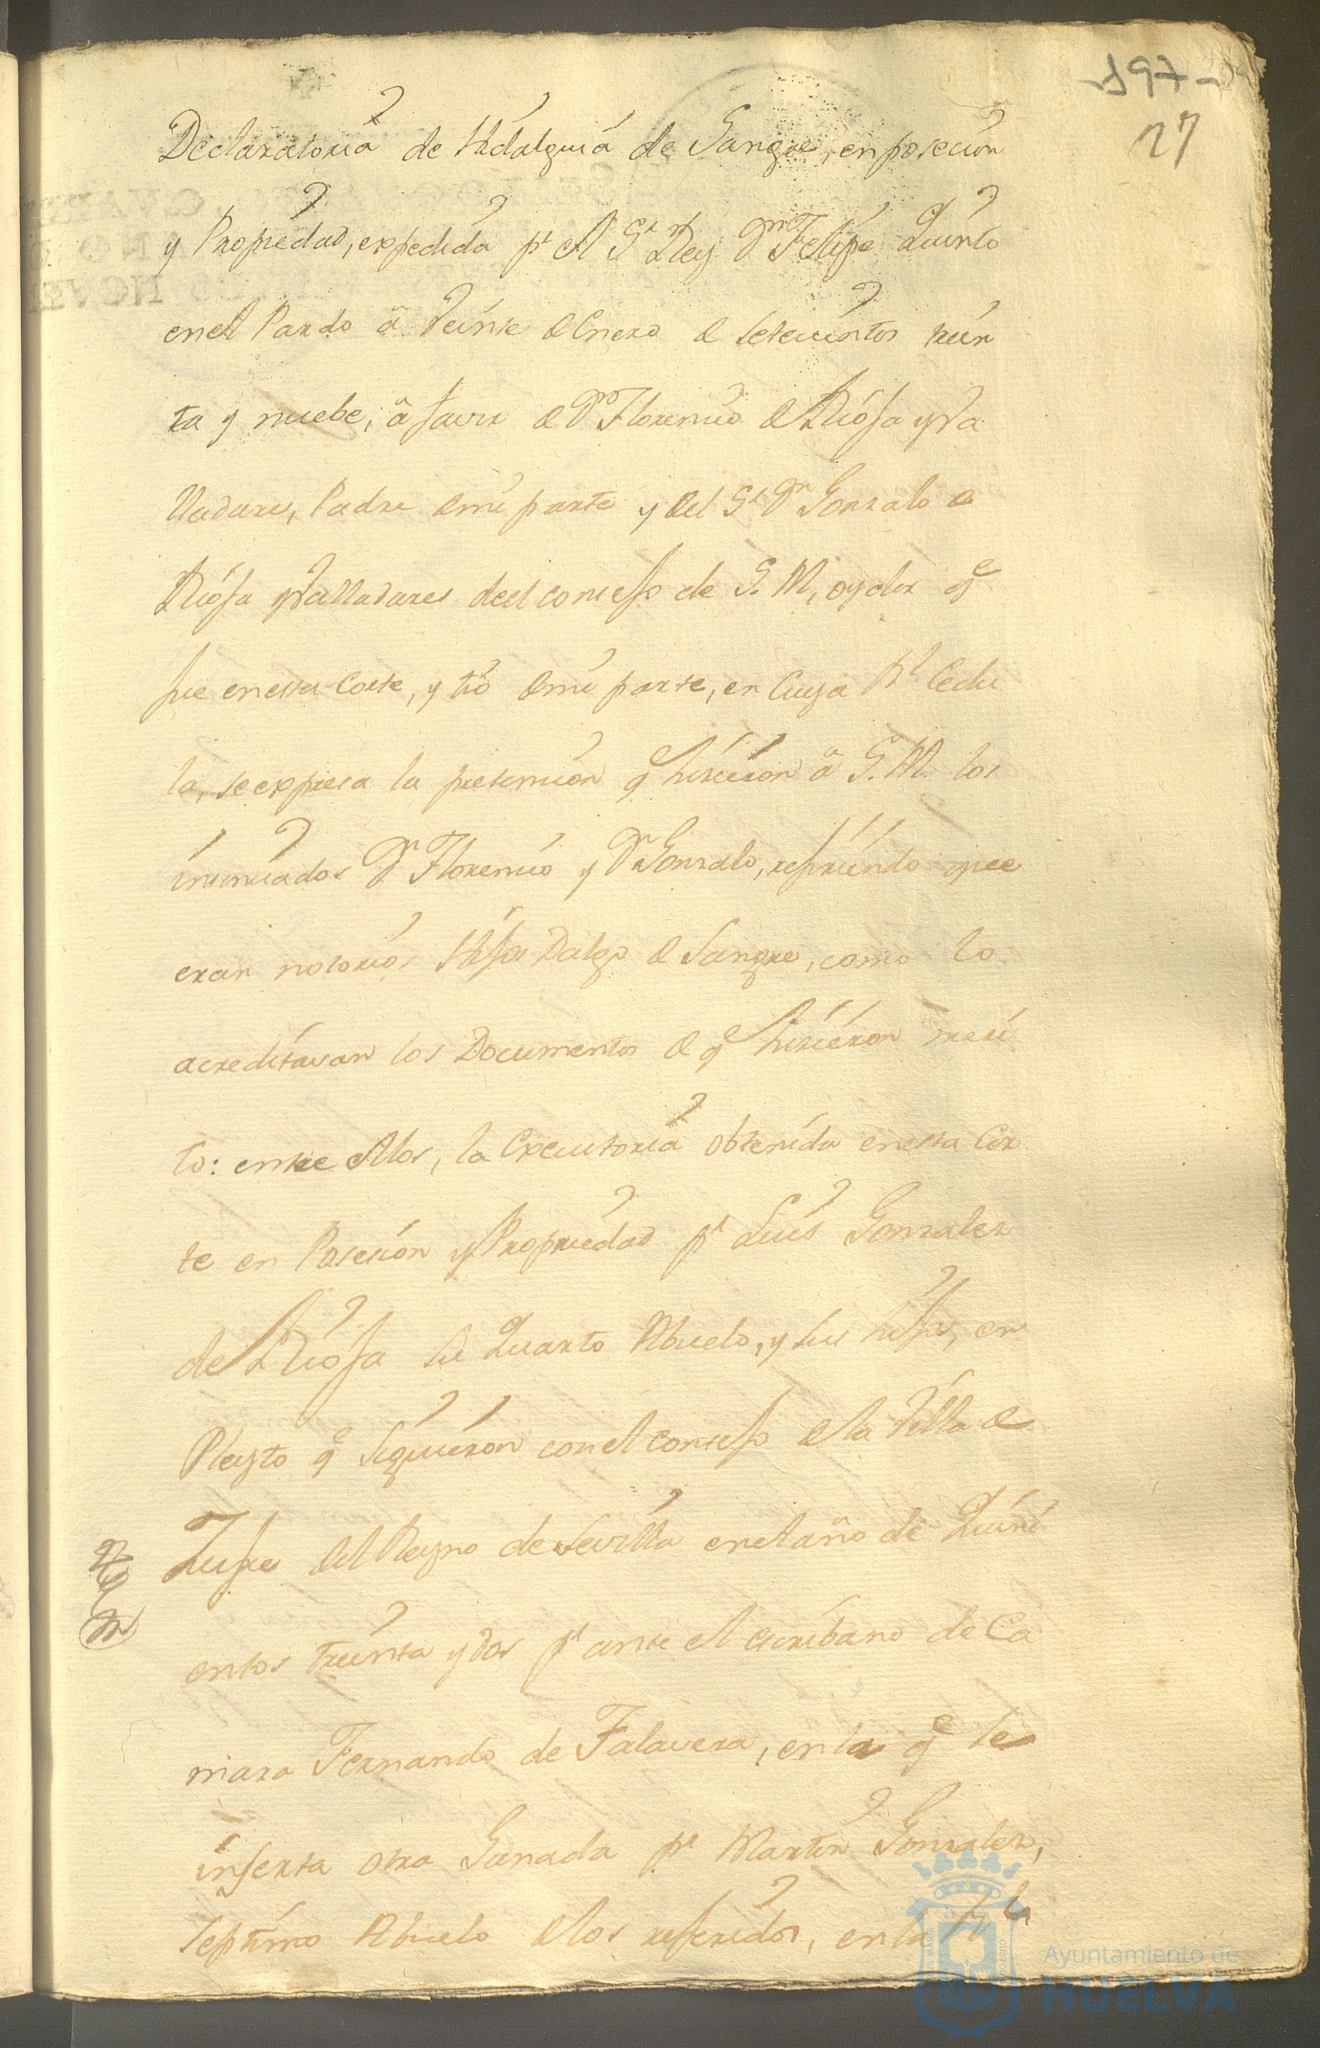 -197-
27
Declaratoria de Hidalguia de Sangre, en posecion
y Propiedad, expedida pr el Sr Rey Dn Felipe Quinto
en el Pardo â veinte de Enero de setecientos trein
ta y nuebe, â favor de Dn Florencio de Rioja y Va
lladares, Padre de mi parte y del Sr Dn Gonzalo de
Rioja y Valladares del consejo de S. M, oydor qe
fue en esta Corte, y tio de mi parte, en cuya Rl Cedu
la, se expresa la pretencion qe hisieron â S. M. los
insinuados Dn Florencio y Dn Gonzalo, refiriendo que
eran notorios Hijos Dalgo de Sangre, como lo
acreditavan los Documentos de qe hisieron meri
to: entre ellos, la Executoria obtenida en esta Cor
te en Posesion y Propriedad pr Luis Gonzalez
de Rioja su Quarto Abuelo, y sus hijos, en
Pleyto qe siguieron con el consejo de la Villa de
Zufre del Reyno de Sevilla en el año de Quini
entos treinta y dos pr ante el escribano de Ca
mara Fernando de Talavera, en la qe se
inserta otra Ganada pr Martin Gonzalez,
septimo Abuelo de los referidos, en la Rl
Ayuntamiento de
HUELVA